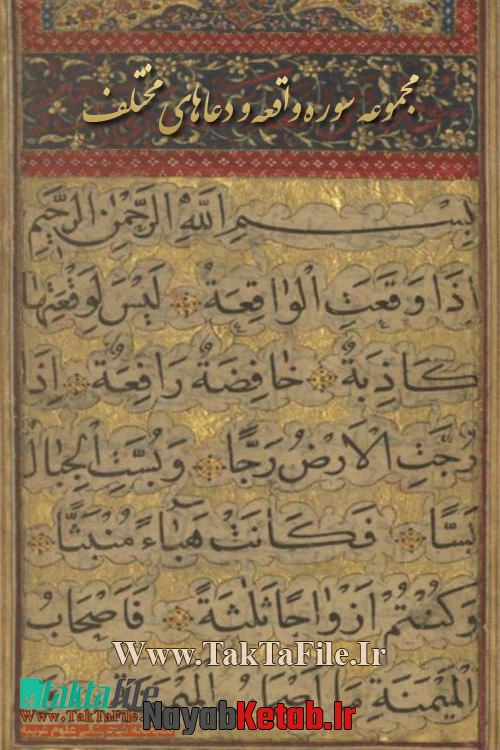 مجموعه سوره واقعه و دعاهای مختلف
بِسْمِ اللَّهِ الرَّحْمٰنِ الرَّحِيمِ
اِذَا وَقَعَتِ الْوَاقِعَةُ لَيْسَ لِوَقْعَتِهَا
كَاذِبَةٌ خَافِضَةٌ رَافِعَةٌ اِذَا
رُجَّتِ الْاَرْضُ رَجًّا وَبُسَّتِ الْجِبَالُ
بَسًّا فَكَانَتْ هَبَاءً مُنْبَثًّا
وَكُنْتُمْ اَزْوَاجًا ثَلٰثَةً فَاَصْحَابُ
Www.TakTaFile.Ir
الْمَيْمَنَةِ مَا اَصْحَابُ
taktafile
www.TakTaFile
NayabKetab.Ir